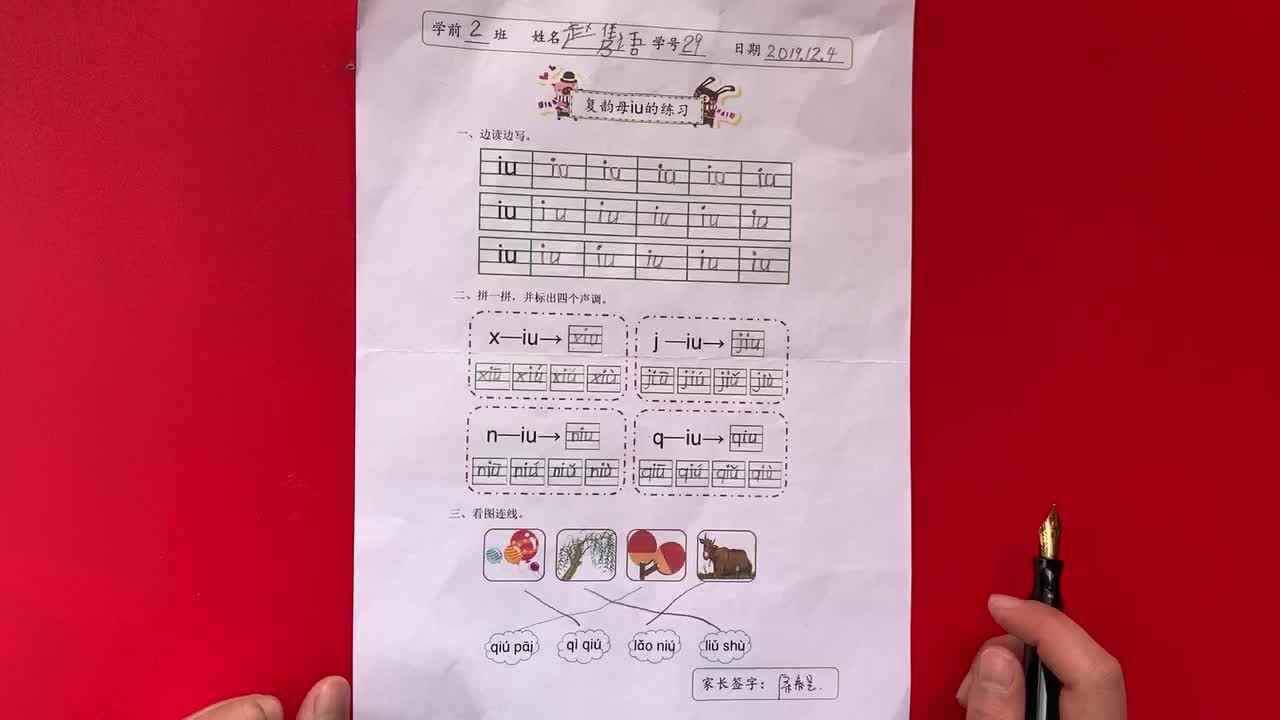 学前 2 班 姓名 赵 语 学号 29 日期 2019.12.4
复韵母iu的练习
一、边读边写。
iu iu iu iu iu iu
iu iu iu iu iu iu
iu iu iu iu iu iu
二、拼一拼，并标出四个声调。
x—iu→ xiu j—iu→ jiu
xiū xiú xiǔ xiù jiū jiú jiǔ jiù
n—iu→ niu q—iu→ qiu
niū niú niǔ niù qiū qiú qiǔ qiù
三、看图连线。
qiú pāi qì qiú lǎo niú liǔ shù
家长签字：